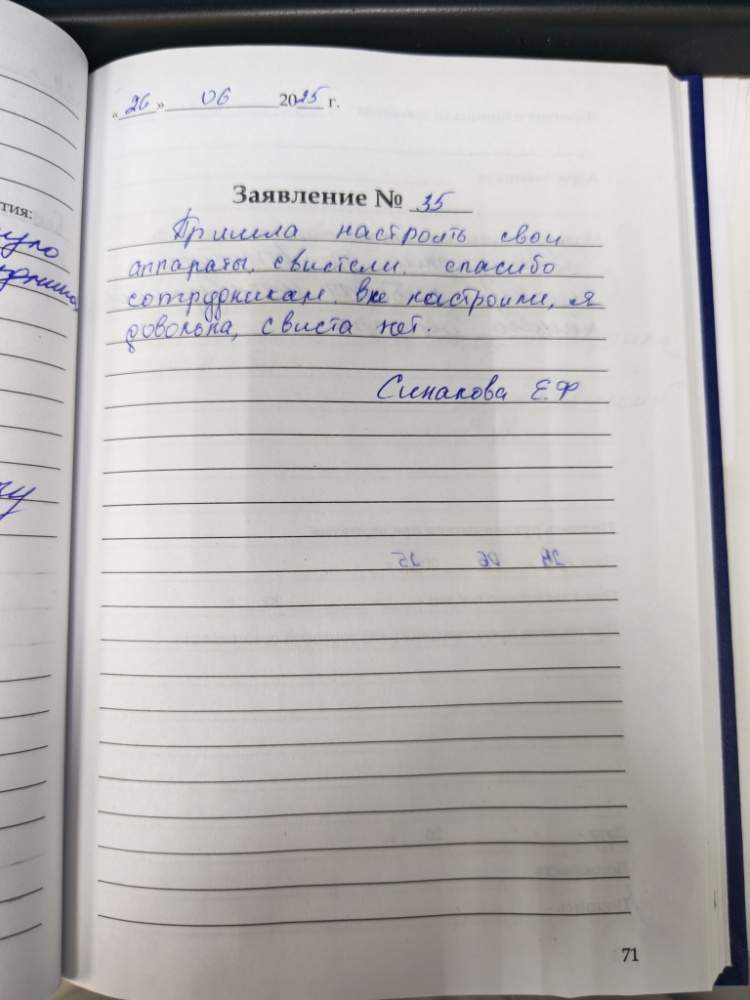 «26» 06 2025 г.
тия:
Заявление № 35
Пришла настроить свои
аппараты, свистели. спасибо
сотрудникам. все настроили, я
довольна, свиста нет.
Синакова Е.Ф
71